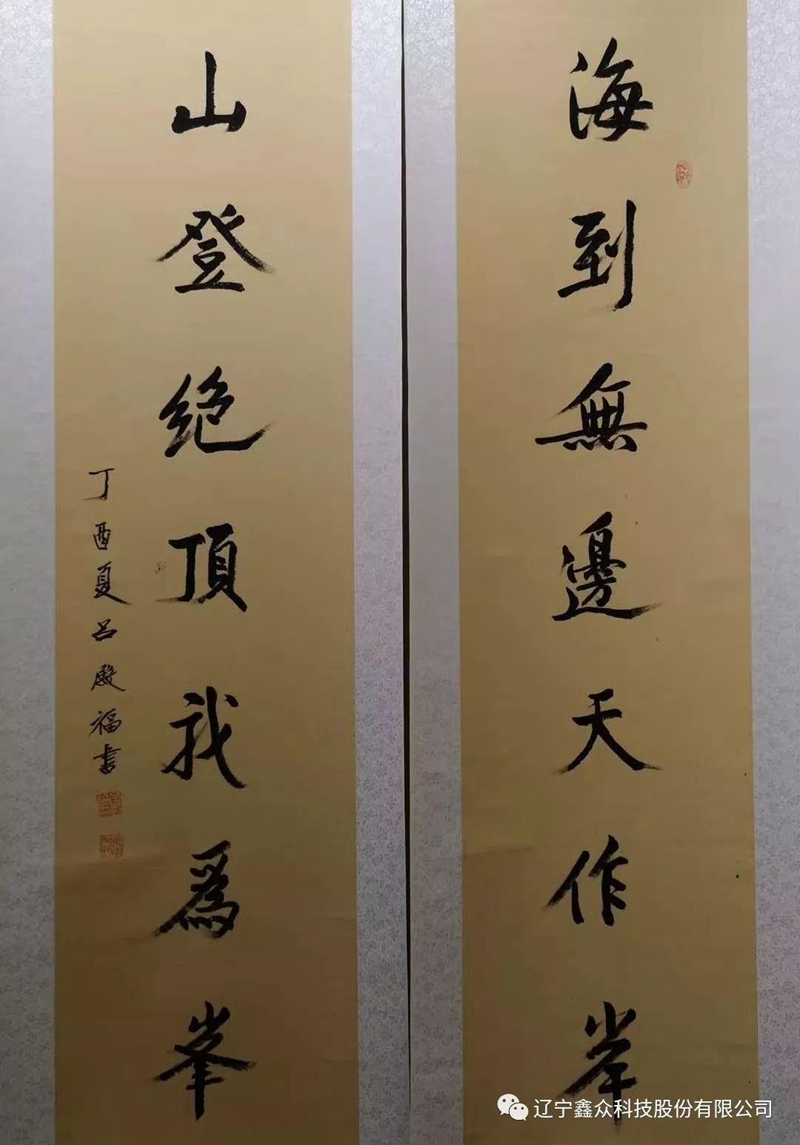 海到無邊天作岸
山登絕頂我爲峯
丁酉夏吕殿福書
辽宁鑫众科技股份有限公司